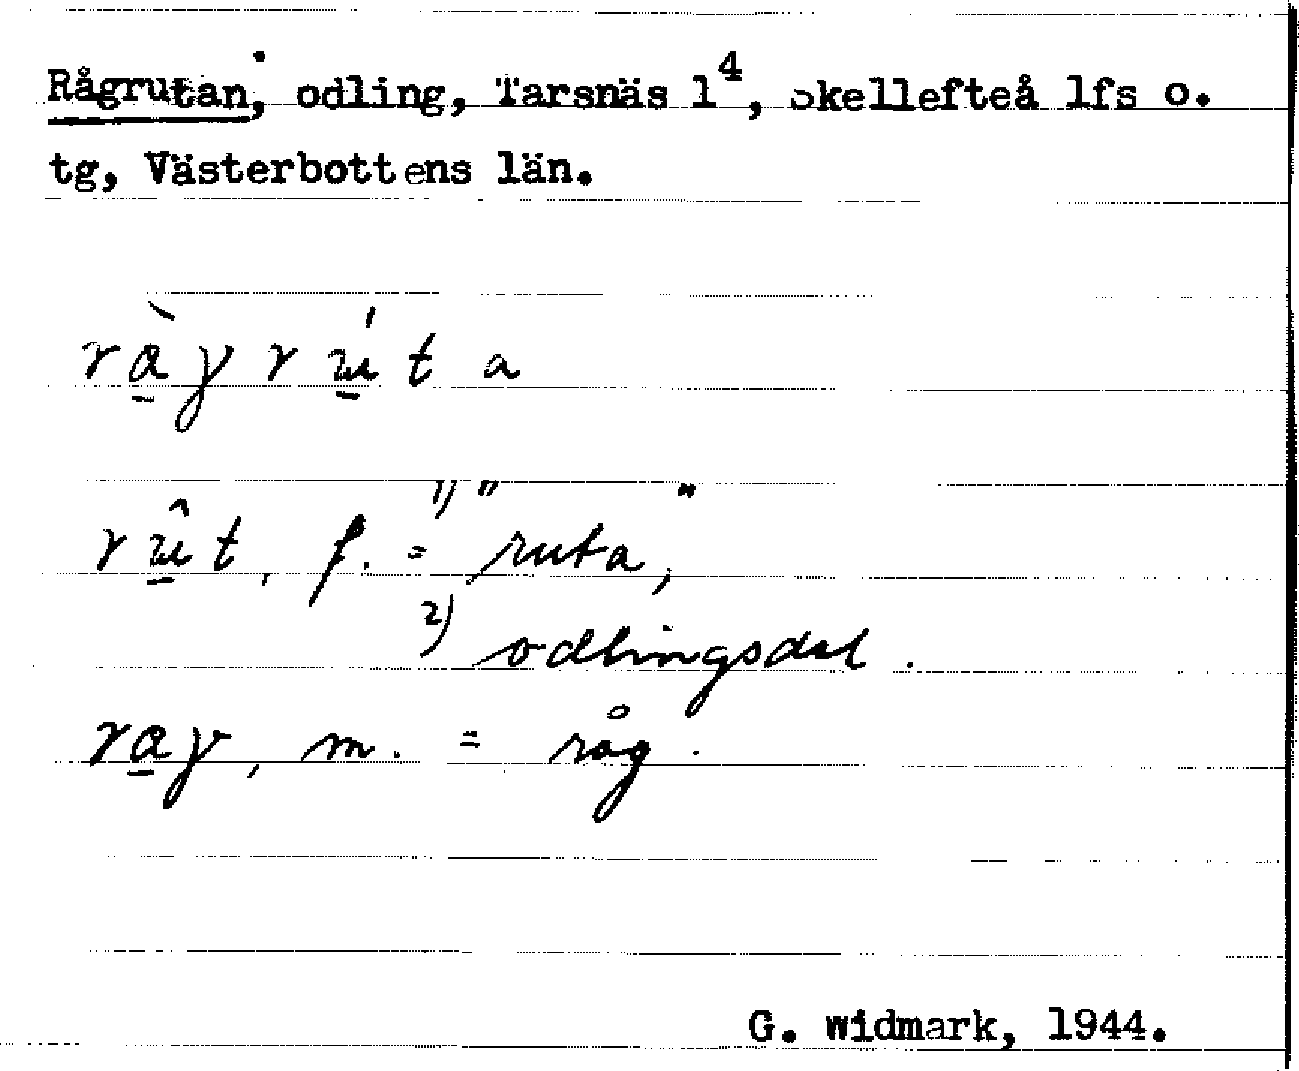 Rågrutan, odling, Tarsnäs 1⁴, Skellefteå lfs o.
tg, Västerbottens län.
rà̱ɣ r ɯ̱́ t a
r ɯ̱̂ t, f. = 1) "ruta",
2) odlingsdel.
ra̱ɣ, m. = råg.
G. Widmark, 1944.